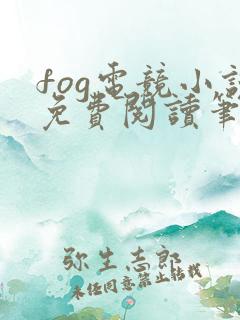 fog電競小說
免費閱讀筆
弥生志郎
未经同意禁止转载